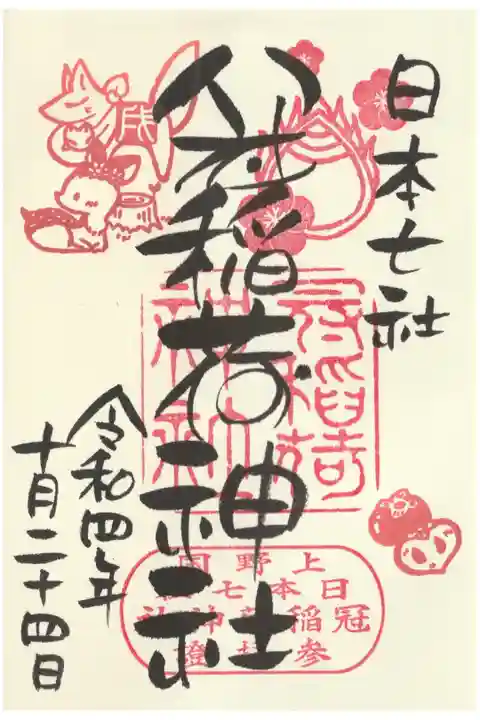 日本七社
冠稲荷神社
令和四年
十月二十四日
上野国
日本七社
冠稲荷神社
参拝證